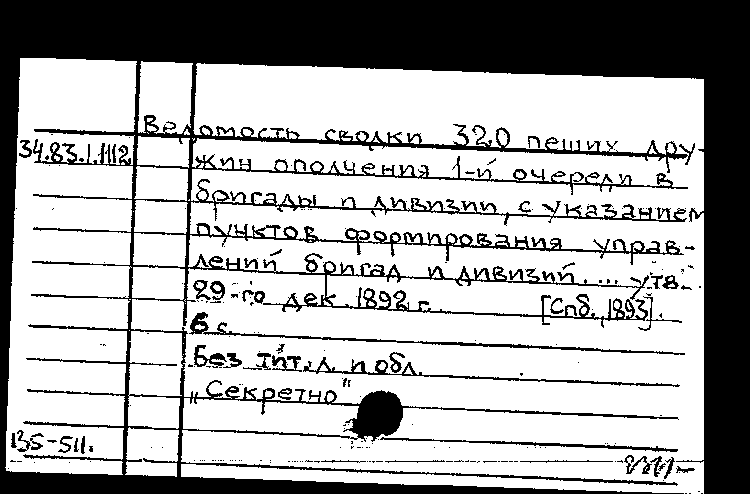 Ведомость сводки 320 пеших дру-
34.83.1.1112
жин ополчения 1-й очереди в
бригады и дивизии, с указанием
пунктов формирования управ-
лений бригад и дивизий.... утв.
29-го дек. 1892 г. [Спб., 1893].
6 с.
Без тит. л. и обл.
„Секретно"
135-511.